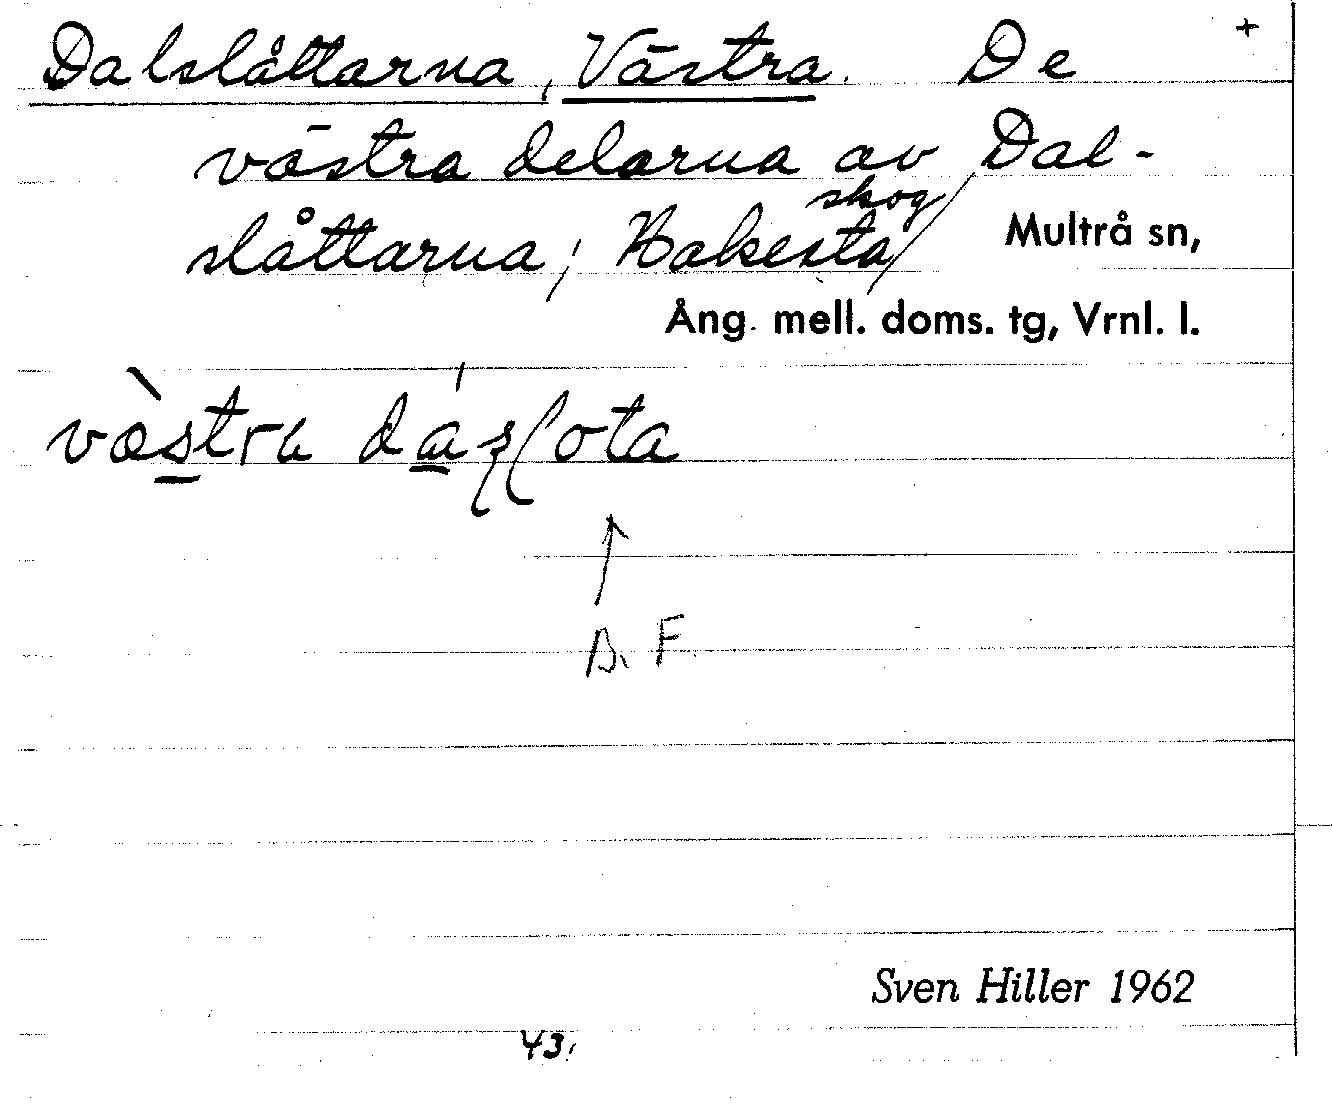 Dalslåttarna, Västra. De +
västra delarna av Dal-
slåttarna; Hakesta skog
Multrå sn,
Ång. mell. doms. tg, Vrnl. l.
västra
43.
Sven Hiller 1962